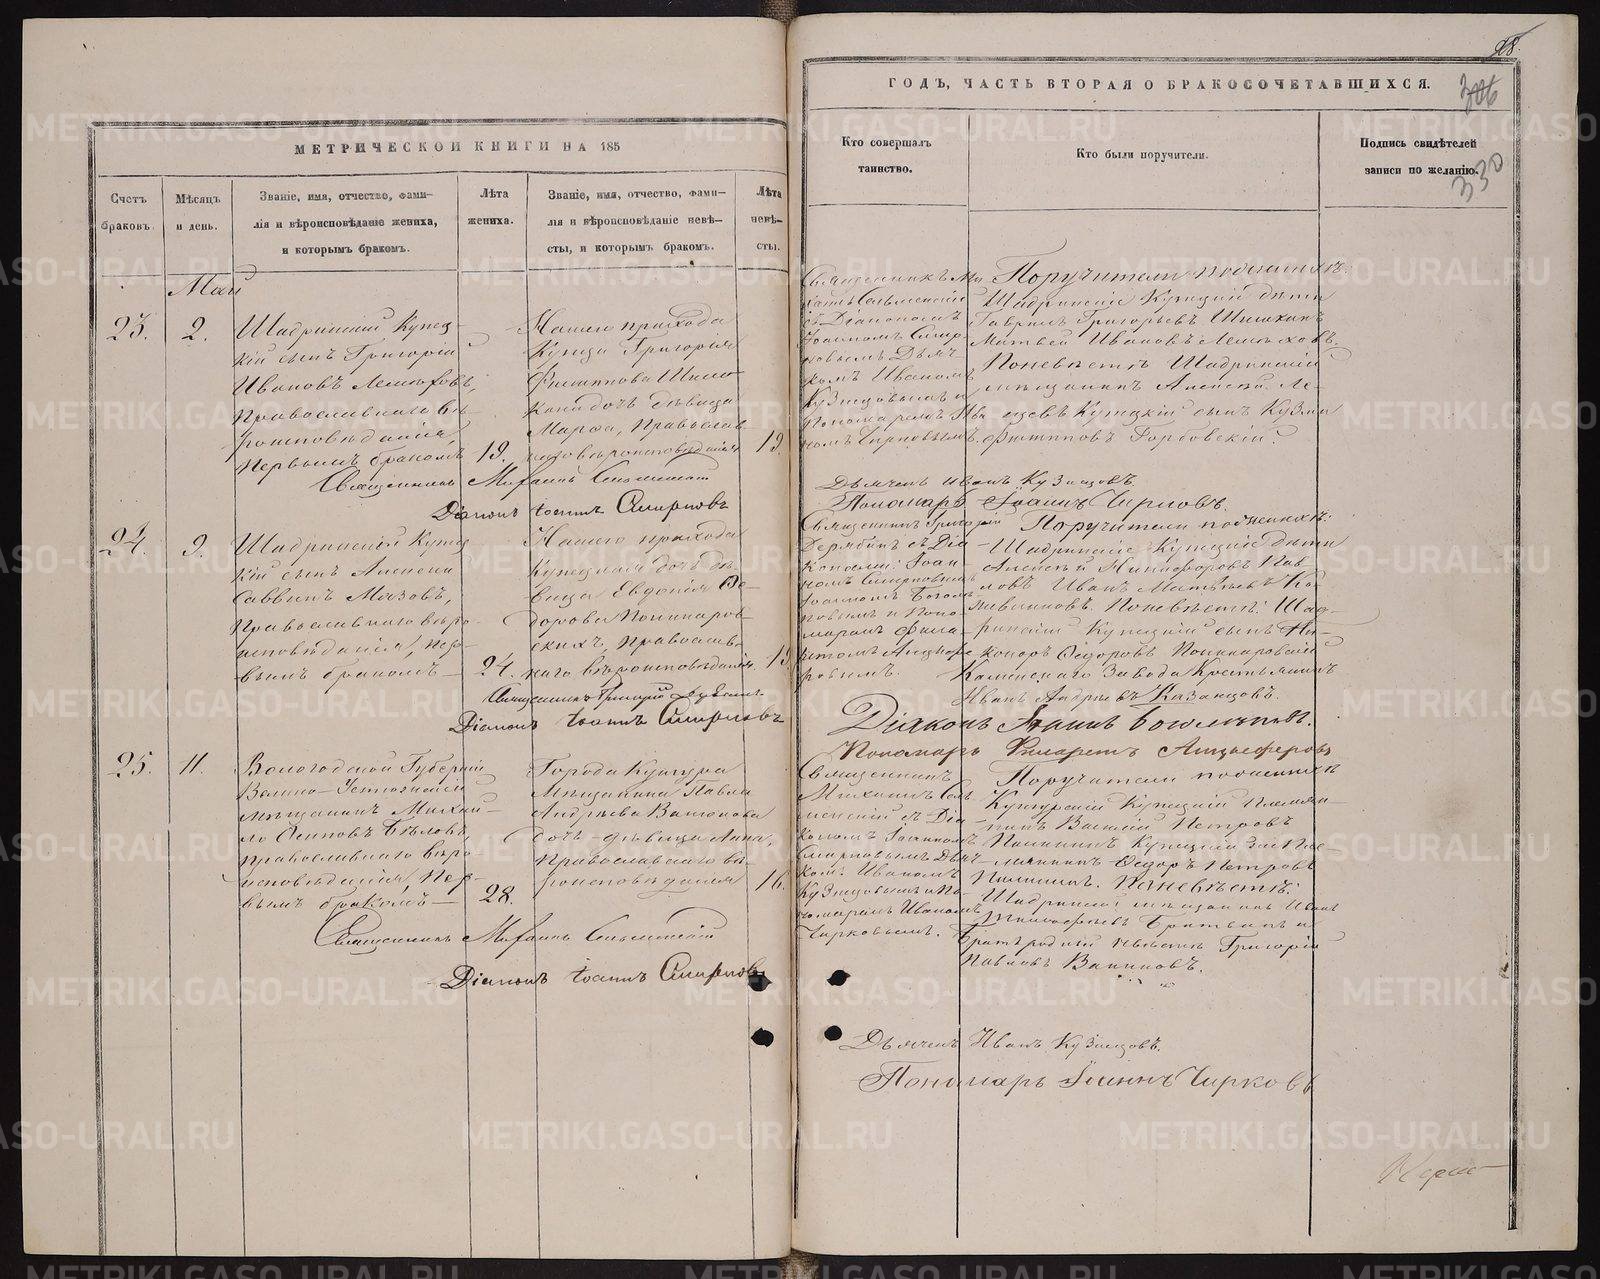 МЕТРИЧЕСКОЙ КНИГИ НА 185
Счетъ браковъ.
Мѣсяцъ и день.
Званіе, имя, отчество, фами-
лія и вѣроисповѣданіе жениха,
и которымъ бракомъ.
Лѣта
жениха.
Званіе, имя, отчество, фами-
лія и вѣроисповѣданіе невѣ-
сты, и которымъ бракомъ.
Лѣта
невѣ-
сты.
Май
23.
2.
Шадринскій Купец-
кій сынъ Григорій
Ивановъ
Православнаго вѣ-
роисповѣданія,
Первымъ бракомъ
19.
Нашего прихода
Купца Григорья
Филиппова Шиш-
кина дочь дѣвица
Марфа, Православ-
наго вѣроисповѣданія
19.
Священникъ Михаилъ Сельменскій
Діаконъ Іоаннъ Смирновъ
24.
9.
Шадринскій Купец-
кій сынъ Алексей
Саввинъ Мязовъ,
Православнаго вѣро-
исповѣданія, пер-
вымъ бракомъ
24.
Нашего прихода
Купецкая дочь дѣ-
вица Евдокія Ѳе-
дорова
Православ-
наго вѣроисповѣданія
19
Священникъ Григорій
Діаконъ Іоаннъ Смирновъ
25.
11.
Вологодской Губерніи
Велико-Устюжскій
мѣщанинъ Михай-
ло Осиповъ Бѣловъ,
православнаго вѣро-
исповѣданія, Пер-
вымъ бракомъ
28.
Города Кунгура
Мѣщанина Павла
Андрѣева
дочь дѣвица Анна,
Православнаго вѣ-
роисповѣданія
16.
Священникъ Михаилъ Сельменскій
Діаконъ Іоаннъ Смирновъ
28.
306
330
ГОДЪ, ЧАСТЬ ВТОРАЯ О БРАКОСОЧЕТАВШИХСЯ.
Кто совершалъ
таинство.
Кто были поручители.
Подпись свидѣтелей
записи по желанію.
Священникъ Ми-
хаилъ Сельменскій
съ Діакономъ
Іоанномъ Смир-
новымъ Дьяч-
комъ Иваномъ
Кузнецовымъ и
Пономаремъ Ива-
номъ Чирковымъ.
Поручители по женихѣ:
Шадринскіе Купецкіе дѣти
Гаврилъ Григорьевъ Шишкинъ
Матвей Ивановъ
По невѣстѣ Шадринскій
мѣщанинъ Алексей
Купецкій сынъ Кузма
Филипповъ Горбовскій.
Дьячекъ Иванъ Кузнецовъ
Пономарь Іоаннъ Чирковъ.
Священникъ Григорій
Дерябинъ съ Діа-
конами: Іоан-
номъ Смирновымъ
Іоанномъ
и Поно-
маремъ Фила-
ретомъ
Поручители по женихѣ:
Шадринскіе Купецкіе дѣти
Алексей Никифоровъ Пав-
ловъ Иванъ Матвѣевъ
По невѣстѣ: Шад-
ринскій Купецкій сынъ Ни-
каноръ Ѳедоровъ
Каменскаго Завода Крестьянинъ
Иванъ Андрѣевъ Казанцовъ.
Діаконъ Іоаннъ
Пономарь Филаретъ
Священникъ
Михаилъ Сель-
менскій съ Діа-
кономъ Іоанномъ
Смирновымъ Дьяч-
комъ Иваномъ
Кузнецовымъ и По-
номаремъ Иваномъ
Чирковымъ.
Поручители по женихѣ
Кунгурскій Купецкій племян-
никъ Василій Петровъ
Пилинъ Купецкій
Ѳедоръ Петровъ
Пилинъ. По невѣстѣ:
Шадринскій мѣщанинъ Иванъ
и
Братъ родной невѣсты Григорій
Павловъ
Дьячекъ Иванъ Кузнецовъ.
Пономарь Іоаннъ Чирковъ
METRIKI.GASO-URAL.RU